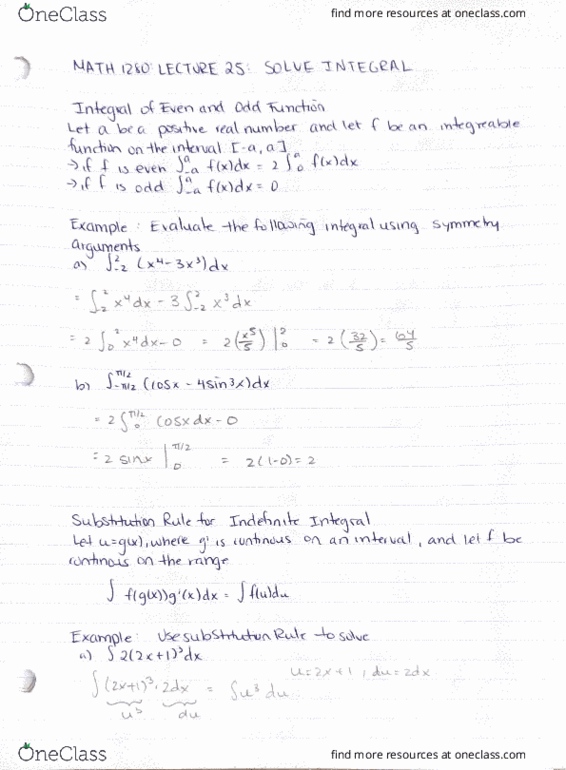 OneClass find more resources at oneclass.com
MATH 1280: LECTURE 25: SOLVE INTEGRAL
Integral of Even and Odd Function
Let a be a positive real number and let f be an integreable
function on the interval [-a, a]
→ if f is even ∫₋ₐᵃ f(x)dx = 2 ∫₀ᵃ f(x)dx
→ if f is odd ∫₋ₐᵃ f(x)dx = 0
Example: Evaluate the following integral using symmetry
arguments
a) ∫₋₂² (x⁴ - 3x³)dx
= ∫₋₂² x⁴dx - 3∫₋₂² x³dx
= 2 ∫₀² x⁴dx - 0 = 2(x⁵/5) |₀² = 2(32/5) = 64/5
b) ∫_{-π/2}^{π/2} (cosx - 4sin³x)dx
= 2∫₀^{π/2} cosxdx - 0
= 2 sinx |₀^{π/2} = 2(1-0) = 2
Substitution Rule for Indefinite Integral
Let u=g(x), where g' is continous on an interval, and let f be
continous on the range
∫ f(g(x))g'(x)dx = ∫f(u)du
Example: Use substitution Rule to solve
a) ∫2(2x+1)³dx
u=2x+1, du=2dx
∫(2x+1)³·2dx = ∫u³ du
u³ du
OneClass find more resources at oneclass.com